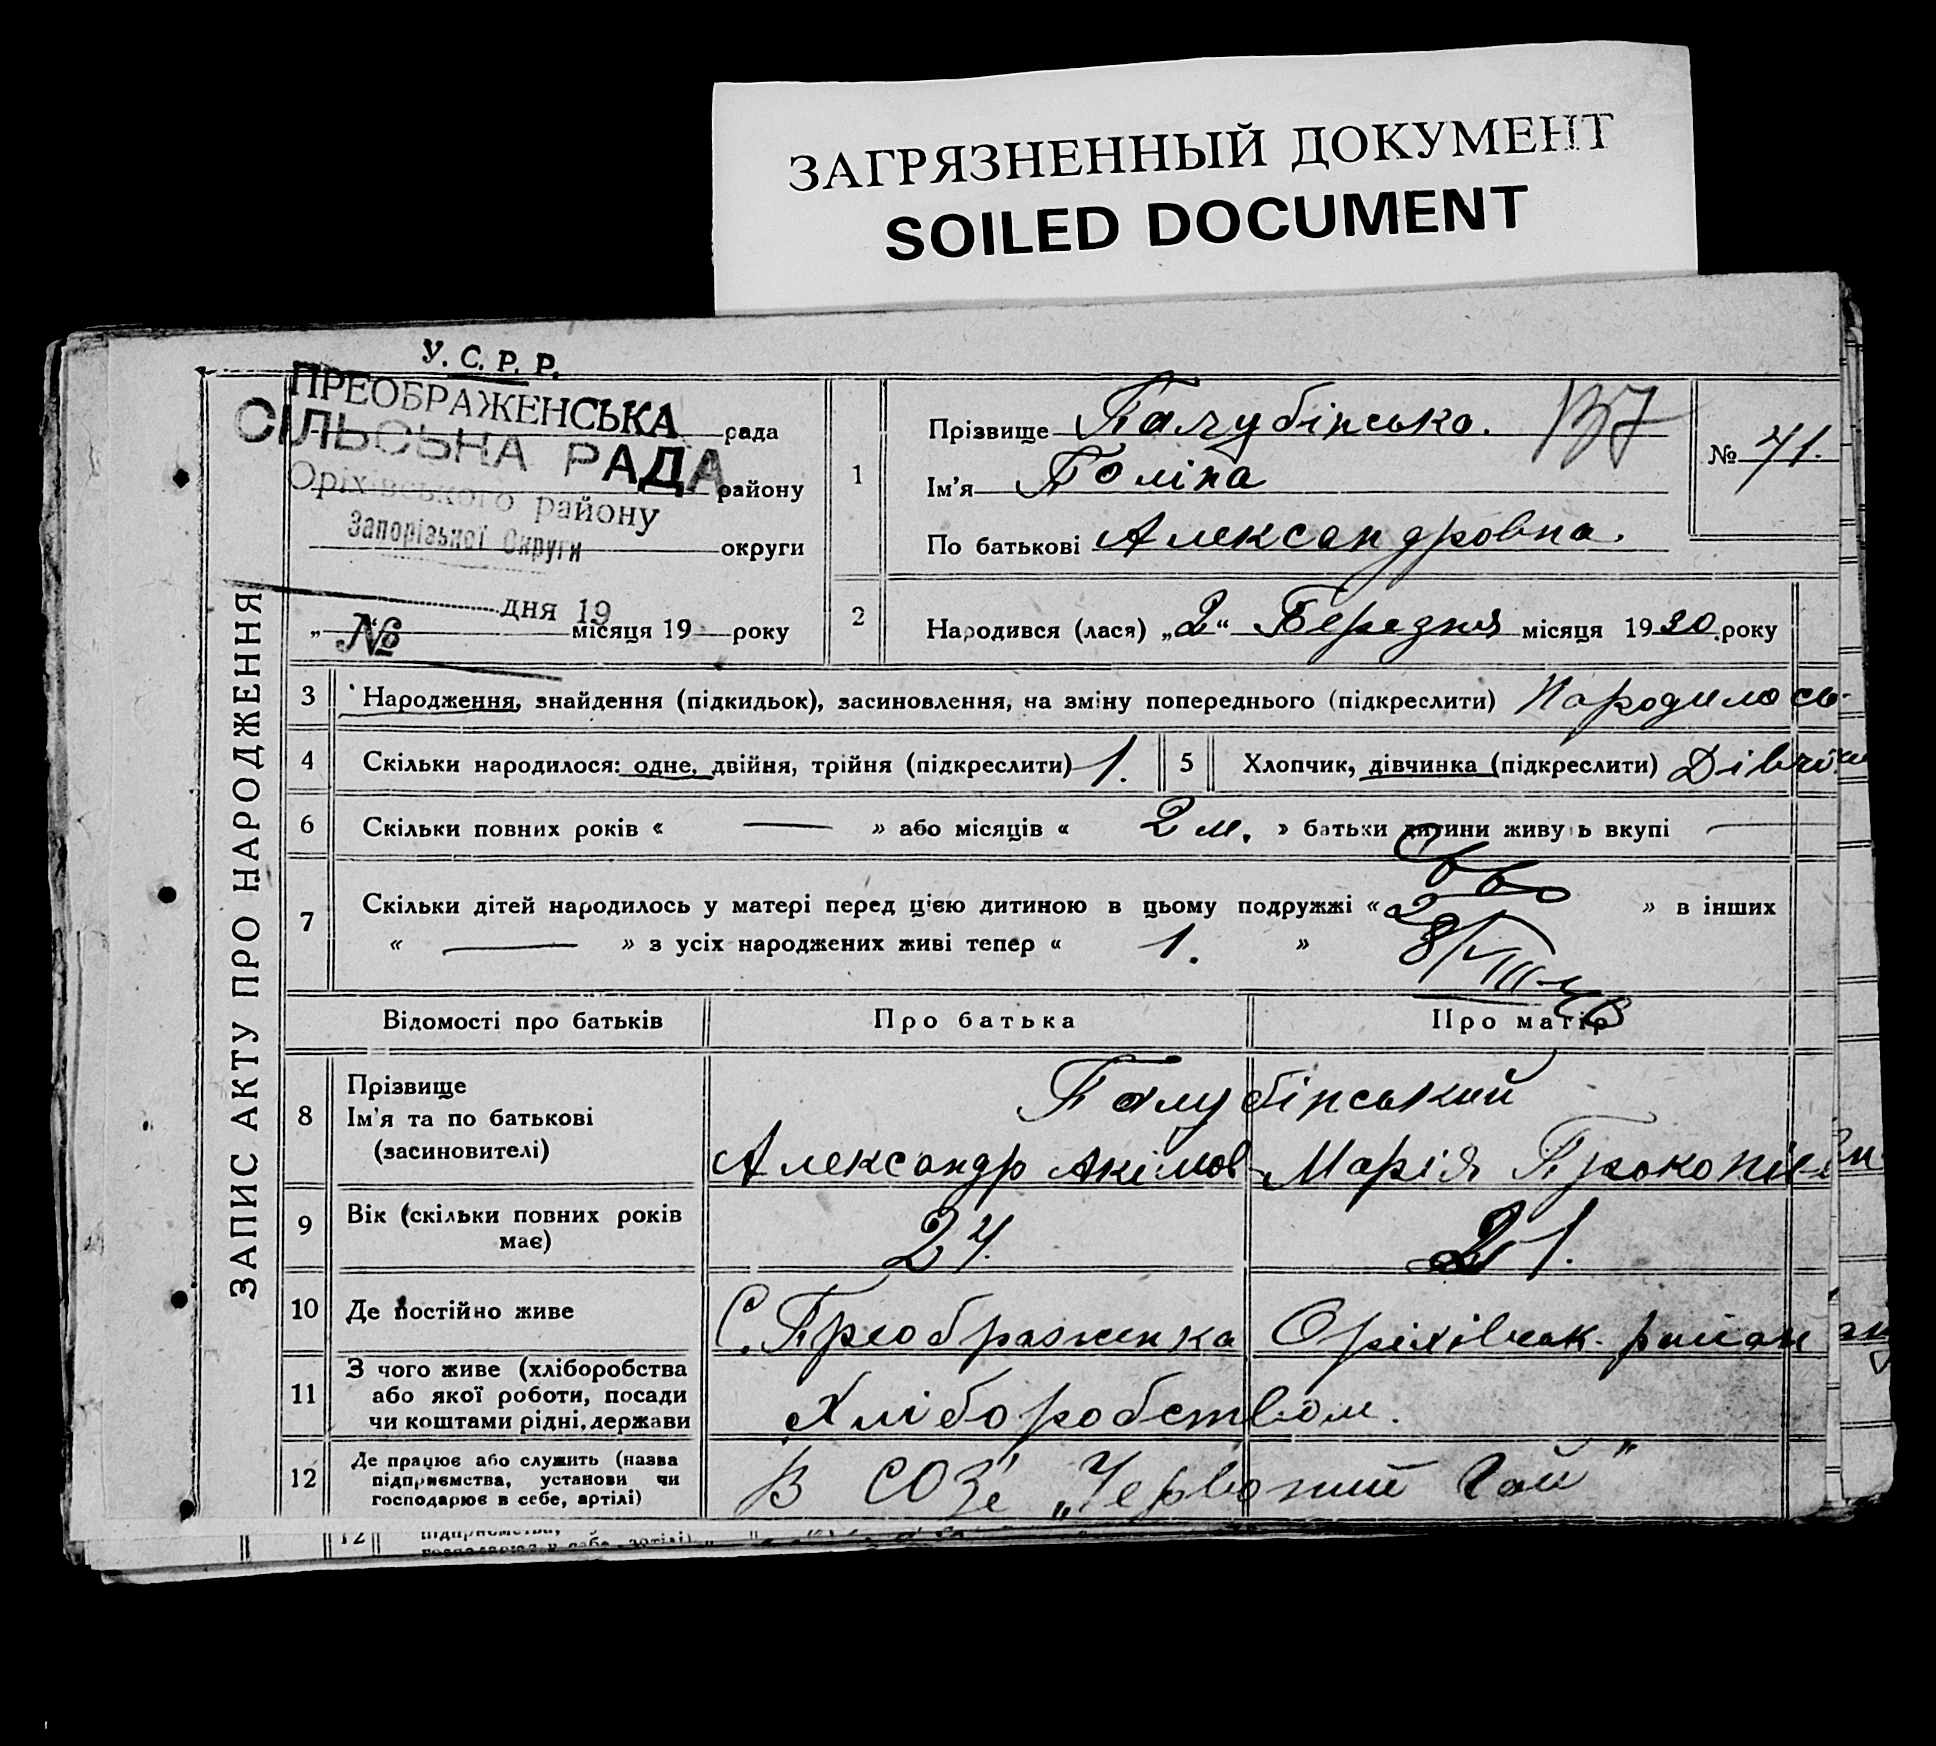 ЗАГРЯЗНЕННЫЙ ДОКУМЕНТ
SOILED DOCUMENT
У. С. Р. Р.
ПРЕОБРАЖЕНСЬКА рада
СІЛЬСЬКА РАДА
Оріхівського району району
Запорізької Округи округи
дня 19
№
„ “ місяця 19 року
ЗАПИС АКТУ ПРО НАРОДЖЕННЯ
1 Прізвище Галубінська.
Ім'я Поліна
По батькові Александровна.
137
№ 41.
2 Народився (лася) „2“ Березня місяця 1930. року
3 Народження, знайдення (підкидьок), засиновлення, на зміну попереднього (підкреслити) Народилась
4 Скільки народилося: одне, двійня, трійня (підкреслити) 1. 5 Хлопчик, дівчинка (підкреслити)
6 Скільки повних років « — » або місяців « 2 м. » батьки дитини живуть вкупі —
7 Скільки дітей народилось у матері перед цією дитиною в цьому подружжі « » в інших
« — » з усіх народжених живі тепер « 1. »
Відомості про батьків Про батька Про матір
8 Прізвище
Ім'я та по батькові
(засновителі)
Галубінський
Александр Акімов Марія
9 Вік (скільки повних років
має)
24. 21.
10 Де постійно живе С. Преображенка Оріхівськ. район
11 З чого живе (хліборобства
або якої роботи, посади
чи коштами рідні, держави
Хліборобством.
12 Де працює або служить (назва
підприємства, установи чи
господарює в себе, артілі)
В СОЗ'і „Червоний Гай"